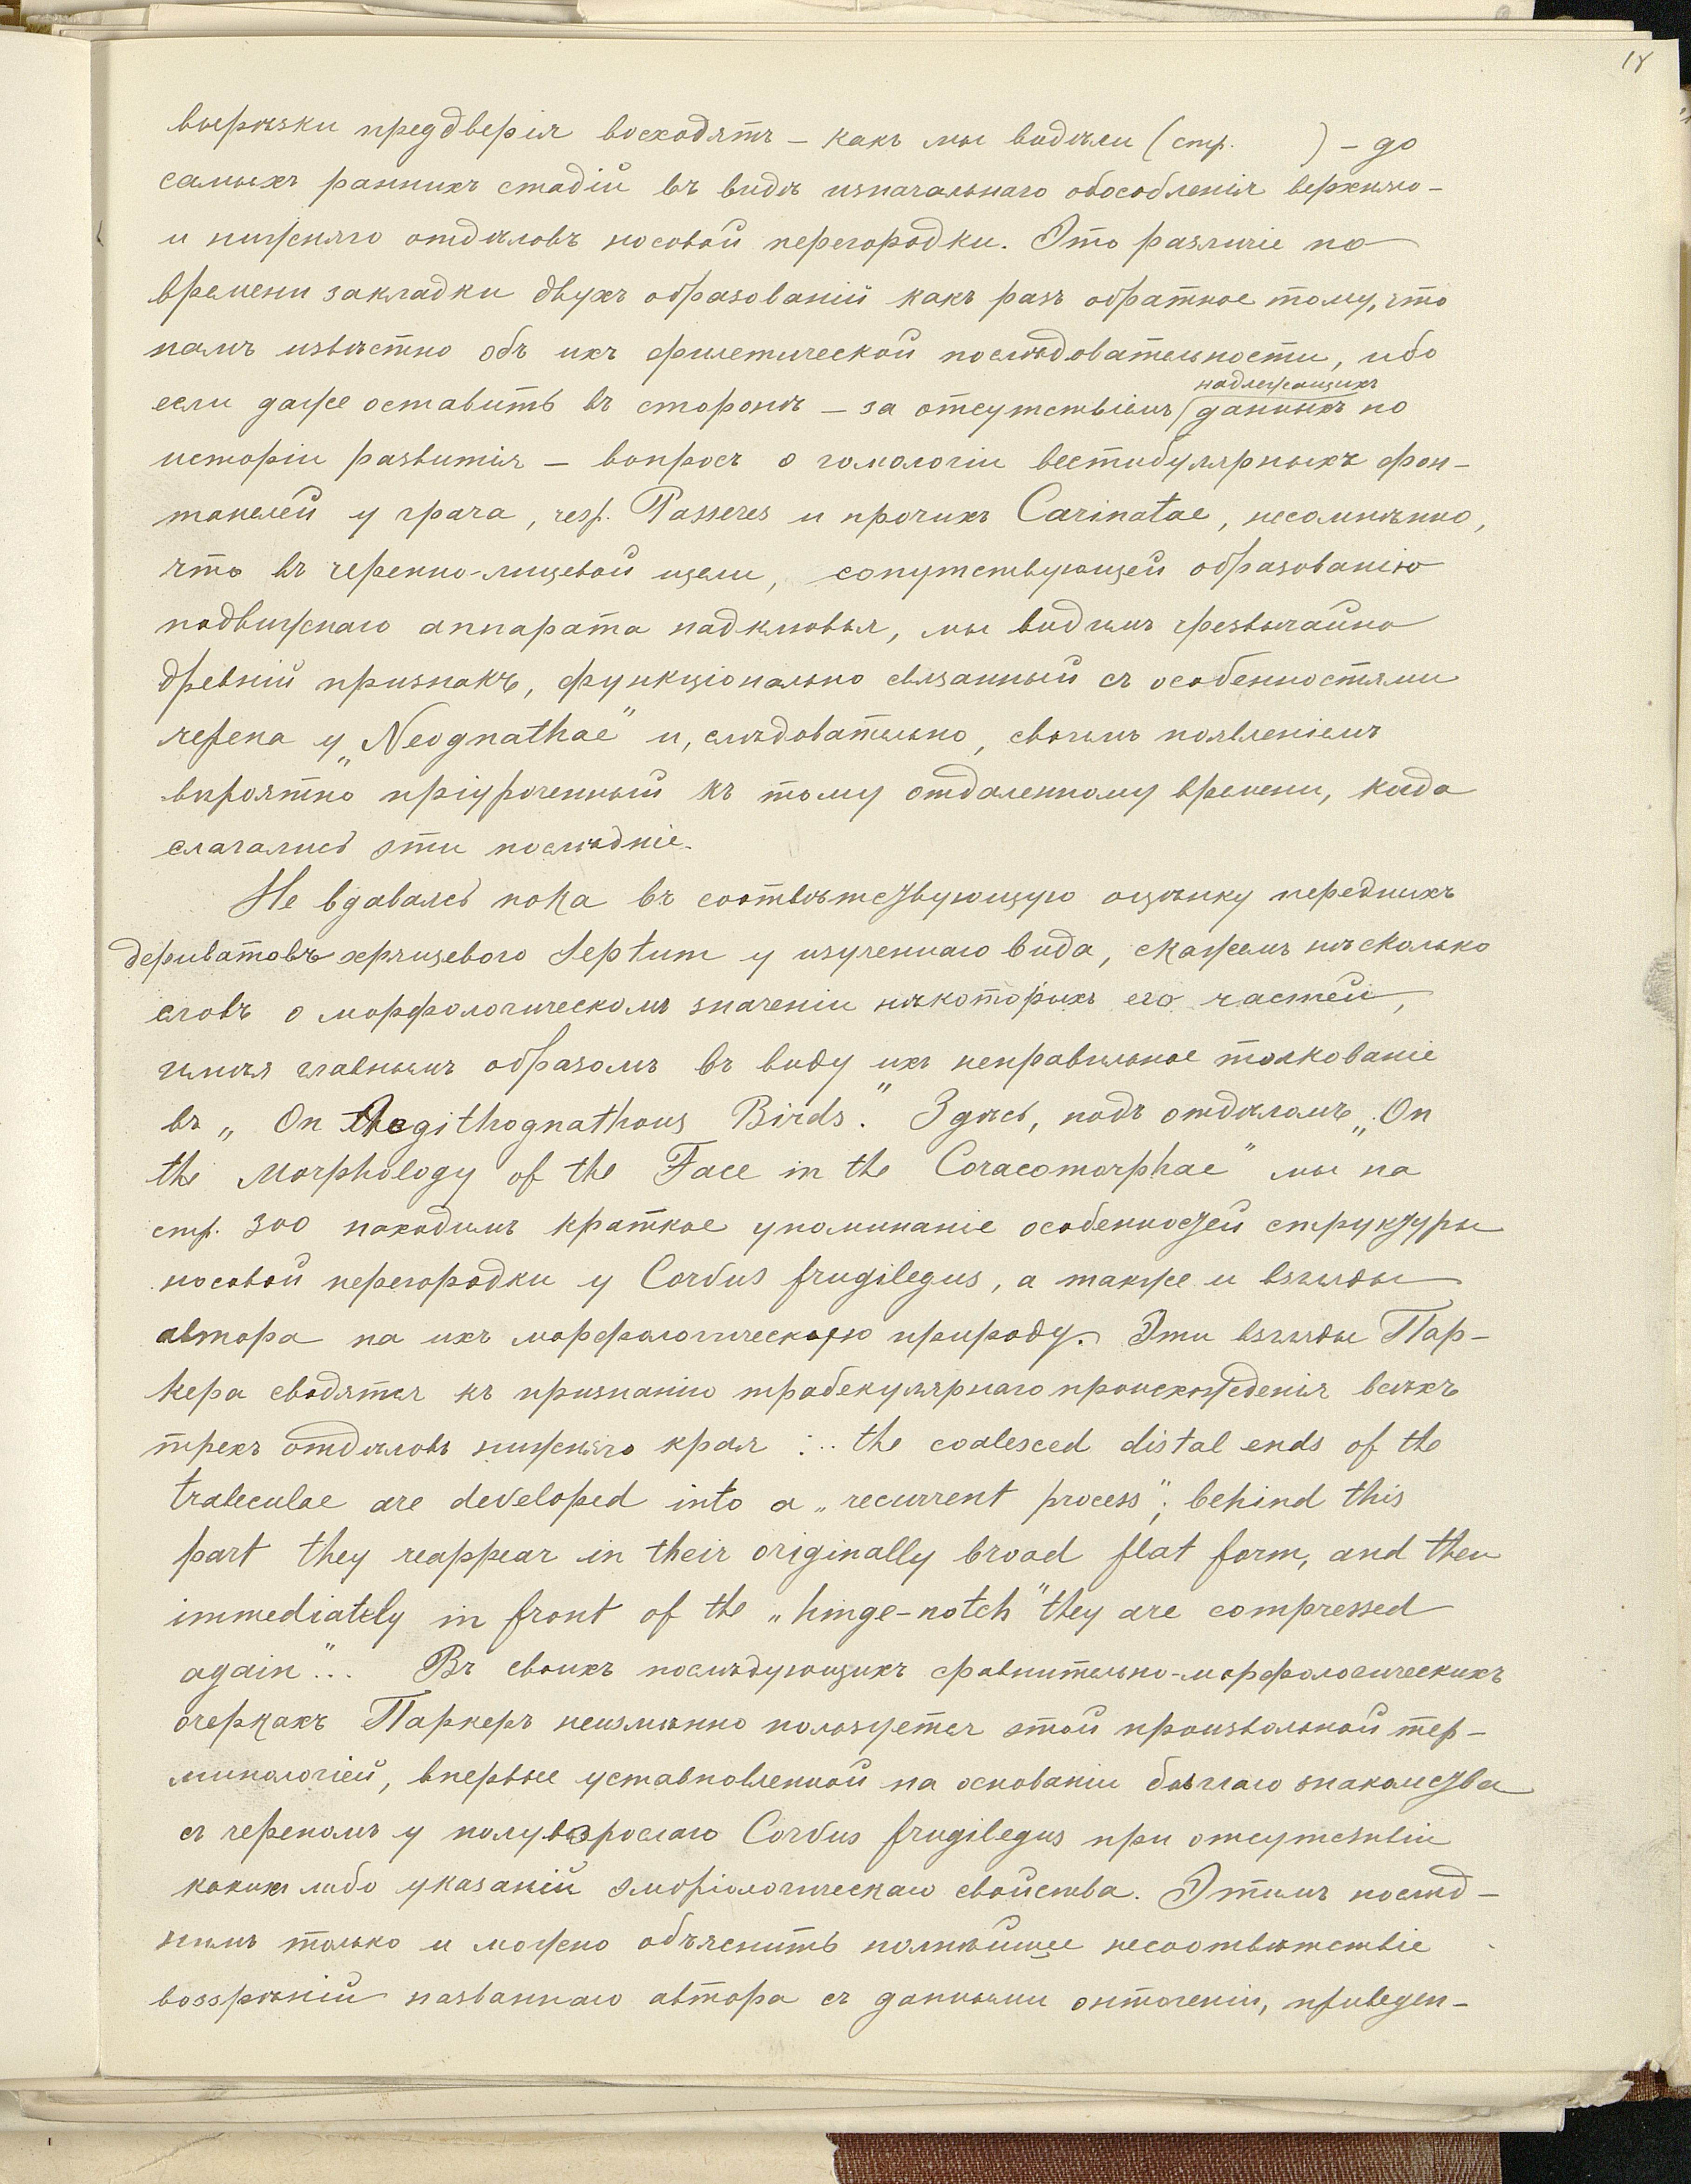 18
вырѣзки предверія восходятъ – какъ мы видѣли (стр. ) – до
самыхъ раннихъ стадій въ видѣ изначальнаго обособленія верхняго –
и нижняго отдѣловъ носовой перегородки. Это различіе по
времени закладки двухъ образованій какъ разъ обратное тому, что
намъ извѣстно объ ихъ филетической послѣдовательности, ибо
надлежащихъ
если даже оставить въ сторонѣ – за отсутствіемъ данныхъ по
исторіи развитія – вопросъ о гомологіи вестибулярныхъ фон-
танелей у грача, resp. Passeres и прочихъ Carinatae, несомнѣнно,
что въ черепно-лицевой щели, сопутствующей образованію
подвижнаго аппарата надклювья, мы видимъ чрезвычайно
древній признакъ, функціонально связанный съ особенностями
черепа у „Neognathae" и, слѣдовательно, своимъ появленіемъ
вѣроятно пріуроченный къ тому отдаленному времени, когда
слагались эти послѣдніе.
Не вдаваясь пока въ соотвѣтствующую оцѣнку переднихъ
дериватовъ хрящевого Septum у изученнаго вида, скажемъ нѣсколько
словъ о морфологическомъ значеніи нѣкоторыхъ его частей,
имѣя главнымъ образомъ въ виду ихъ неправильное толкованіе
въ „On Aegithognathous Birds." Здѣсь, подъ отдѣломъ „On
the Morphology of the Face in the Coracomorphae" мы на
стр. 300 находимъ краткое упоминаніе особенностей структуры
носовой перегородки у Corvus frugilegus, а также и взгляды
автора на ихъ морфологическую природу. Эти взгляды Пар-
кера сводятся къ признанію трабекулярнаго происхожденія всѣхъ
трехъ отдѣловъ нижняго края : .. the coalesced distal ends of the
trabeculae are developed into a „recurrent process"; behind this
part they reappear in their originally broad flat form, and then
immediately in front of the „hinge-notch" they are compressed
again"... Въ своихъ послѣдующихъ сравнительно-морфологическихъ
очеркахъ Паркеръ неизмѣнно пользуется этой произвольной тер-
минологіей, впервые установленной на основаніи бѣглаго знакомства
съ черепомъ у полувзрослаго Corvus frugilegus при отсутствіи
какихъ либо указаній эмбріологическаго свойства. Этимъ послѣд-
нимъ только и можно объяснить полнѣйшее несоотвѣтствіе
воззрѣній названнаго автора съ данными онтогеніи, приведен-